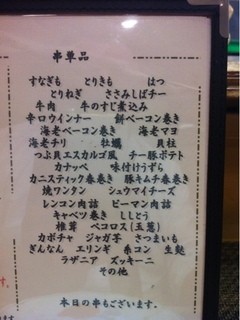 串単品
すなぎも　とりきも　はつ
とりねぎ　ささみしばチー
牛肉　牛のすじ煮込み
辛口ウインナー　餅ベーコン巻き
海老ベーコン巻き　海老マヨ
海老チリ　牡蠣　貝柱
つぶ貝エスカルゴ風　チー豚ポテト
カナッペ　味付けうずら
カニスティック春巻き　豚キムチ春巻き
焼ワンタン　シュウマイチーズ
レンコン肉詰　ピーマン肉詰
キャベツ巻き　ししとう
椎茸　ペコロス(玉葱)
カボチャ　ジャガ芋　さつまいも
ぎんなん　エリンギ　糸コン　生麩
ラザニア　ズッキーニ
その他
本日の串もございます。